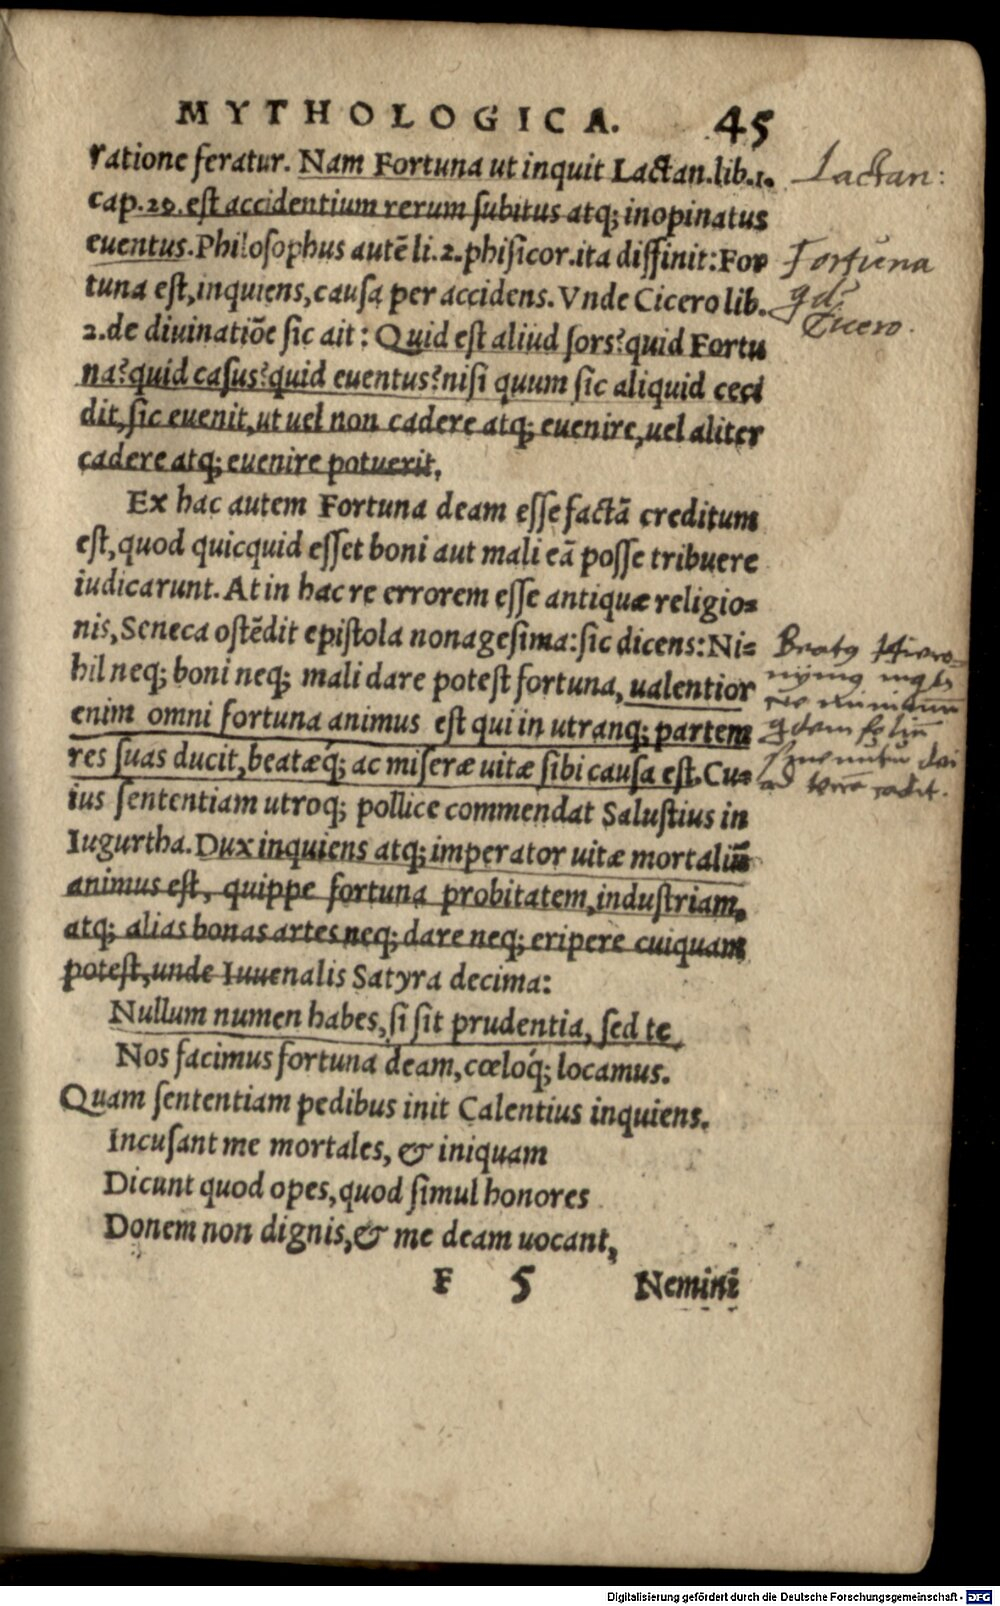 MYTHOLOGICA. 45
ratione feratur. Nam Fortuna ut inquit Lactan. lib. 1.
cap. 29. est accidentium rerum subitus atq; inopinatus
euentus. Philosophus autē li. 2. phisicor. ita diffinit: For
tuna est, inquiens, causa per accidens. Vnde Cicero lib.
2. de diuinatiōe sic ait: Quid est aliud sors? quid Fortu
na? quid casus? quid euentus? nisi quum sic aliquid ceci
dit, sic euenit, ut uel non cadere atq; euenire, uel aliter
cadere atq; euenire potuerit.
Ex hac autem Fortuna deam esse factā creditum
est, quod quicquid esset boni aut mali eā posse tribuere
iudicarunt. At in hac re errorem esse antiquæ religio=
nis, Seneca ostēdit epistola nonagesima: sic dicens: Ni=
hil neq; boni neq; mali dare potest fortuna, ualentior
enim omni fortuna animus est qui in utranq; partem
res suas ducit, beatæq́; ac miseræ uitæ sibi causa est. Cu=
ius sententiam utroq; pollice commendat Salustius in
Iugurtha. Dux inquiens atq; imperator uitæ mortaliū
animus est, quippe fortuna probitatem, industriam,
atq; alias bonas artes neq; dare neq; eripere cuiquam
potest, unde Iuuenalis Satyra decima:
Nullum numen habes, si sit prudentia, sed te
Nos facimus fortuna deam, cœloq́; locamus.
Quam sententiam pedibus init Calentius inquiens.
Incusant me mortales, & iniquam
Dicunt quod opes, quod simul honores
Donem non dignis, & me deam uocant,
F 5 Nemini
Lactan:
Fortuna
qd
Cicero.
Beatus Hiero-
nymus
Digitalisierung gefördert durch die Deutsche Forschungsgemeinschaft - DFG